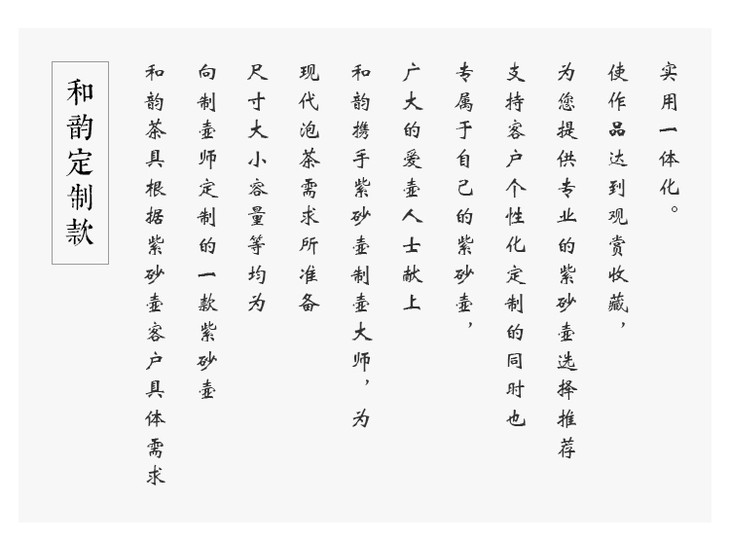 和韵定制款
和韵茶具根据紫砂壶客户具体需求
向制壶师定制的一款紫砂壶
尺寸大小容量等均为
现代泡茶需求所准备
和韵携手紫砂壶制壶大师，为
广大的爱壶人士献上
专属于自己的紫砂壶，
支持客户个性化定制的同时也
为您提供专业的紫砂壶选择推荐
使作品达到观赏收藏，
实用一体化。